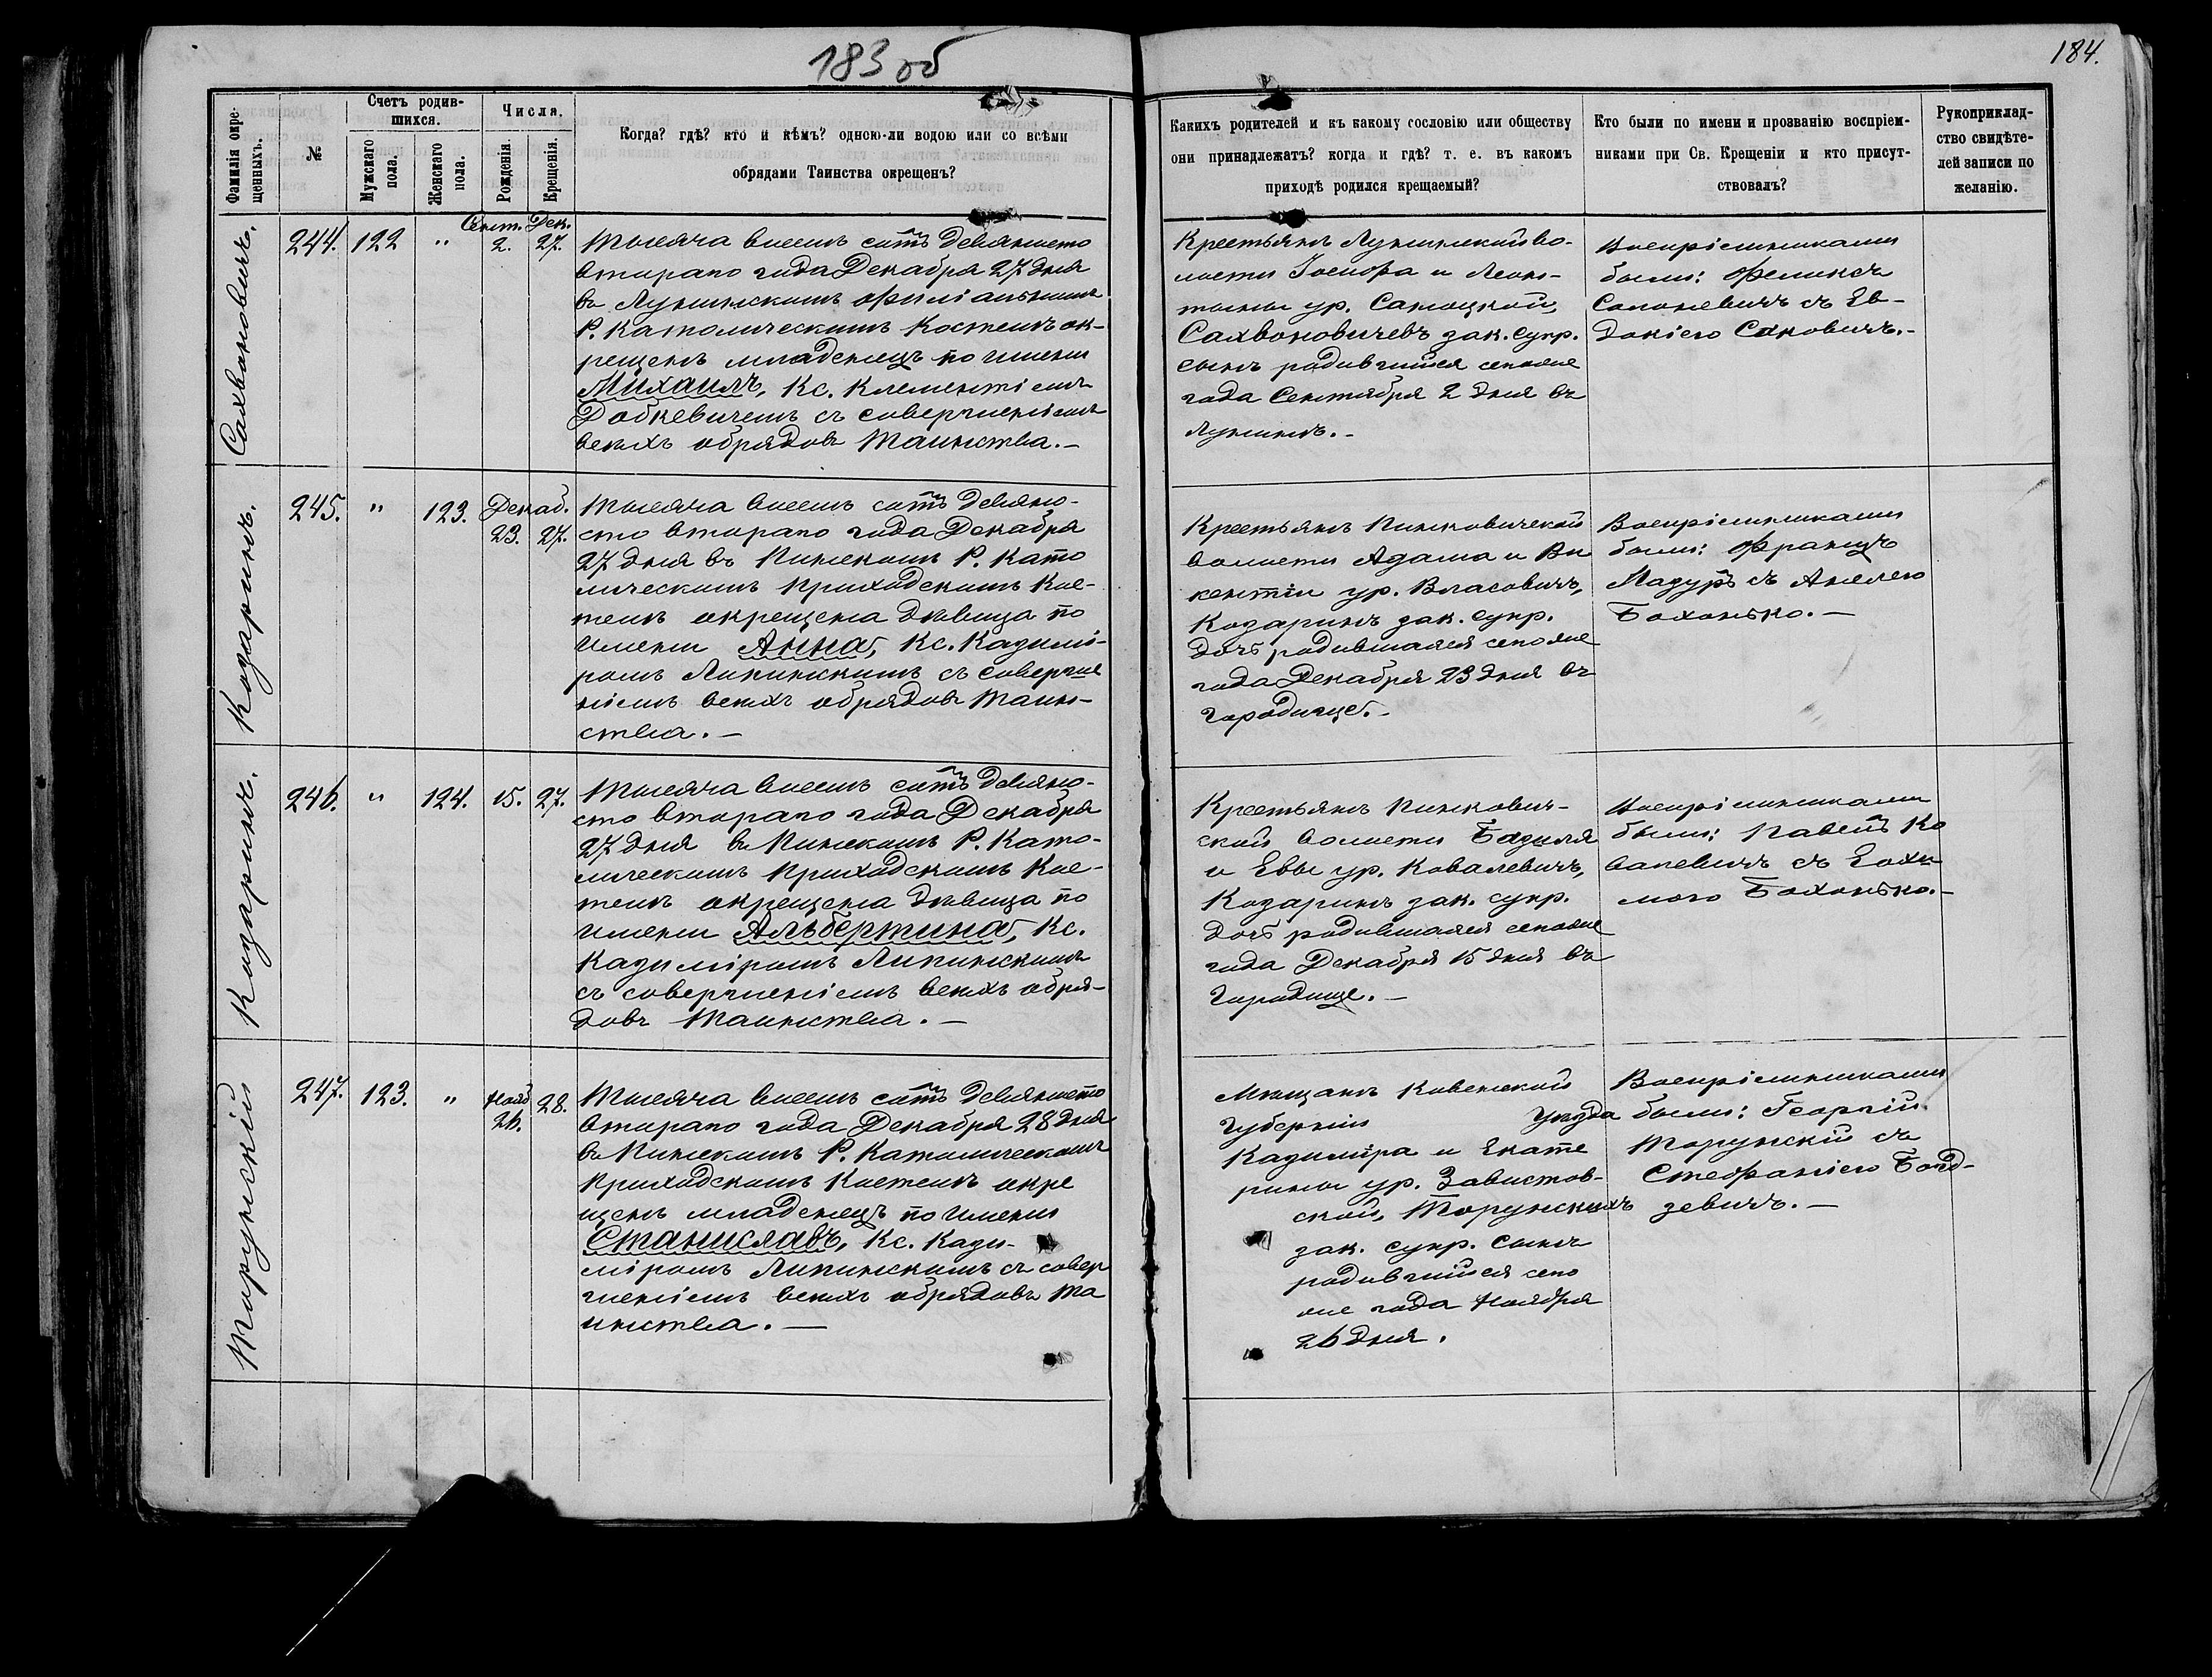 183 об
184.
Фамилія окре-
щенныхъ.
№
Счетъ родив-
шихся.
Мужскаго
пола.
Женскаго
пола.
Числа.
Рожденія.
Крещенія.
Когда? гдѣ? кто и кѣмъ? одною-ли водою или со всѣми
обрядами Таинства окрещенъ?
Какихъ родителей и къ какому сословію или обществу
они принадлежатъ? когда и гдѣ? т. е. въ какомъ
приходѣ родился крещаемый?
Кто были по имени и прозванію воспріем-
никами при Св. Крещеніи и кто присут-
ствовалъ?
Рукоприклад-
ство свидѣте-
лей записи по
желанію.
Сахвоновичъ.
244.
122
"
Сент.
2.
Дек.
27.
Тысяча восемь сотъ девяносто
втораго года Декабря 27 дня
въ Лунинскомъ филіальномъ
Р. Католическомъ Костелѣ ок-
рещенъ младенецъ по имени
Михаилъ, Кс. Клементіемъ
Добкевичемъ съ совершеніемъ
всѣхъ обрядовъ Таинства.-
Крестьянъ Лунинской во-
лости Іосифа и Леон-
тины ур. Самоцкой,
Сахвоновичевъ зак. супр.
сынъ родившійся сегоже
года Сентября 2 дня въ
Лунинѣ.-
Воспріемниками
были: Феликсъ
Солоневичъ съ Ев-
докіею Саковичъ.-
Козаринъ.
245.
"
123.
Декаб.
23.
27.
Тысяча восемь сотъ девяно-
сто втораго года Декабря
27 дня въ Пинскомъ Р. Като
лическомъ приходскомъ Кос-
телѣ окрещена дѣвица по
имени Анна, Кс. Казимі-
ромъ Липинскимъ съ соверше
ніемъ всѣхъ обрядовъ Таин-
ства.-
Крестьянъ Пинковичской
волости Адама и Ви
кентіи ур. Власовичъ,
Козаринъ зак. супр.
дочь родившаяся сегоже
года Декабря 23 дня въ
Городище.-
Воспріемниками
были: Францъ
Мазуръ съ Анелею
Бохонько.-
Козаринъ.
246.
"
124.
15.
27.
Тысяча восемь сотъ девяно-
сто втораго года Декабря
27 дня въ Пинскомъ Р. Като-
лическомъ Приходскомъ Кос-
телѣ окрещена дѣвица по
имени Альбертина, Кс.
Казиміромъ Липинскимъ
съ совершеніемъ всѣхъ обря-
довъ Таинства.-
Крестьянъ Пинкович-
ской волости Базиля
и Евы ур. Ковалевичъ,
Козаринъ зак. супр.
дочь родившаяся сегоже
года Декабря 15 дня въ
Городище.-
Воспріемниками
были: Павелъ Ко
валевичъ съ Еохи
мою Бохонько.-
Торунскій
247.
123.
"
Нояб
26.
28.
Тысяча восемь сотъ девяносто
втораго года Декабря 28 дня
въ Пинскомъ Р. Католическомъ
Приходскомъ Костелѣ окре
щенъ младенецъ по имени
Станиславъ, Кс. Кази-
міромъ Липинскимъ съ совер
шеніемъ всѣхъ обрядовъ Та
инства.-
Мѣщанъ Ковенской
Губерніи Уѣзда
Казиміра и Екате
рины ур. Завистов-
ской, Торунскихъ
зак. супр. сынъ
родившійся сего
же года Ноября
26 дня.
Воспріемниками
были: Георгій
Торунскій съ
Стефаніею Бонд-
зевичъ.-